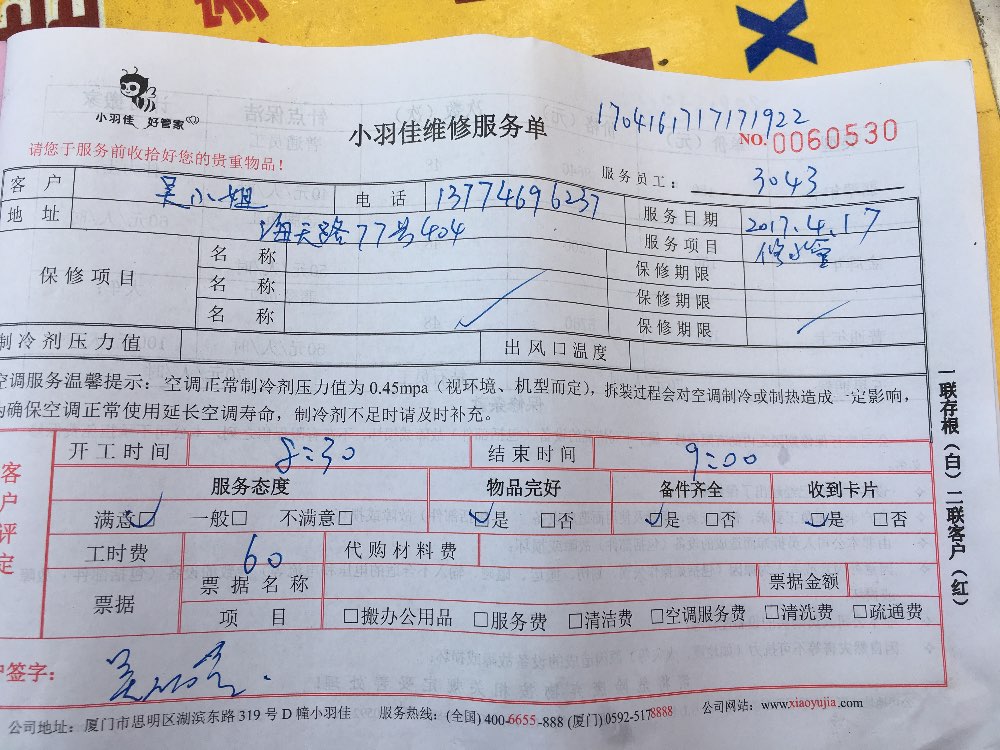 小羽佳 好管家
小羽佳维修服务单
1704161717171922
NO.0060530
请您于服务前收拾好您的贵重物品！
服务员工： 3043
客户 吴小姐 电话 13774696237
服务日期 2017.4.17
地址 海天路77号404
服务项目
保修项目
名称 保修期限
名称 保修期限
名称 保修期限
制冷剂压力值 出风口温度
空调服务温馨提示：空调正常制冷剂压力值为0.45mpa（视环境、机型而定），拆装过程会对空调制冷或制热造成一定影响，
为确保空调正常使用延长空调寿命，制冷剂不足时请及时补充。
客户评定
开工时间 8:30 结束时间 9:00
服务态度 物品完好 备件齐全 收到卡片
满意☑ 一般□ 不满意□ ☑是 □否 ☑是 □否 ☑是 □否
工时费 60 代购材料费
票据 票据名称 票据金额
项目 □搬办公用品 □服务费 □清洁费 □空调服务费 □清洗费 □疏通费
户签字：
公司地址：厦门市思明区湖滨东路319号D幢小羽佳 服务热线：(全国)400-6655-888 (厦门)0592-5178888 公司网站：www.xiaoyujia.com
一联存根（白）二联客户（红）